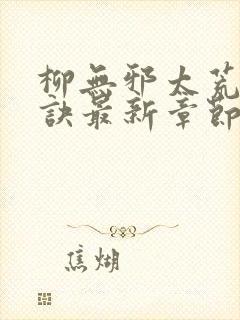 柳無邪太荒
訣最新章節
焦煳